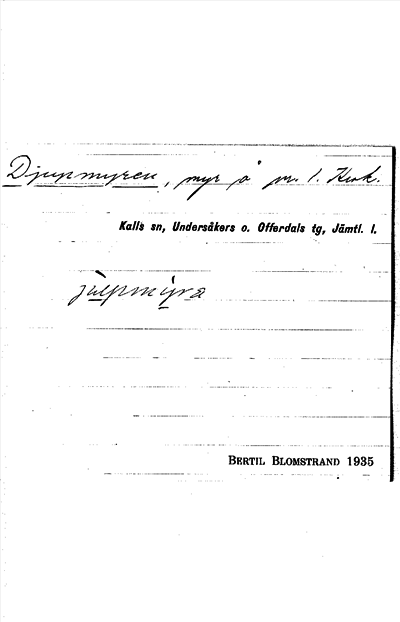 Djupmyren, myr å pr. 1. Kvk.
Kalls sn, Undersåkers o. Offerdals tg, Jämtl. l.
jùpmýra
BERTIL BLOMSTRAND 1935